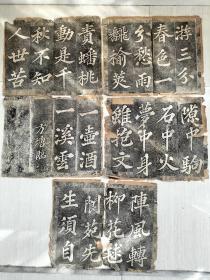 游三分
春色一
分愁雨
飜榆莢
責蟠桃
動是千
秋不知
人世苦
隙中駒
石中火
夢中身
雖抱文
一壺酒
一溪雲
陣風轉
柳花毬
閬苑先
生須自